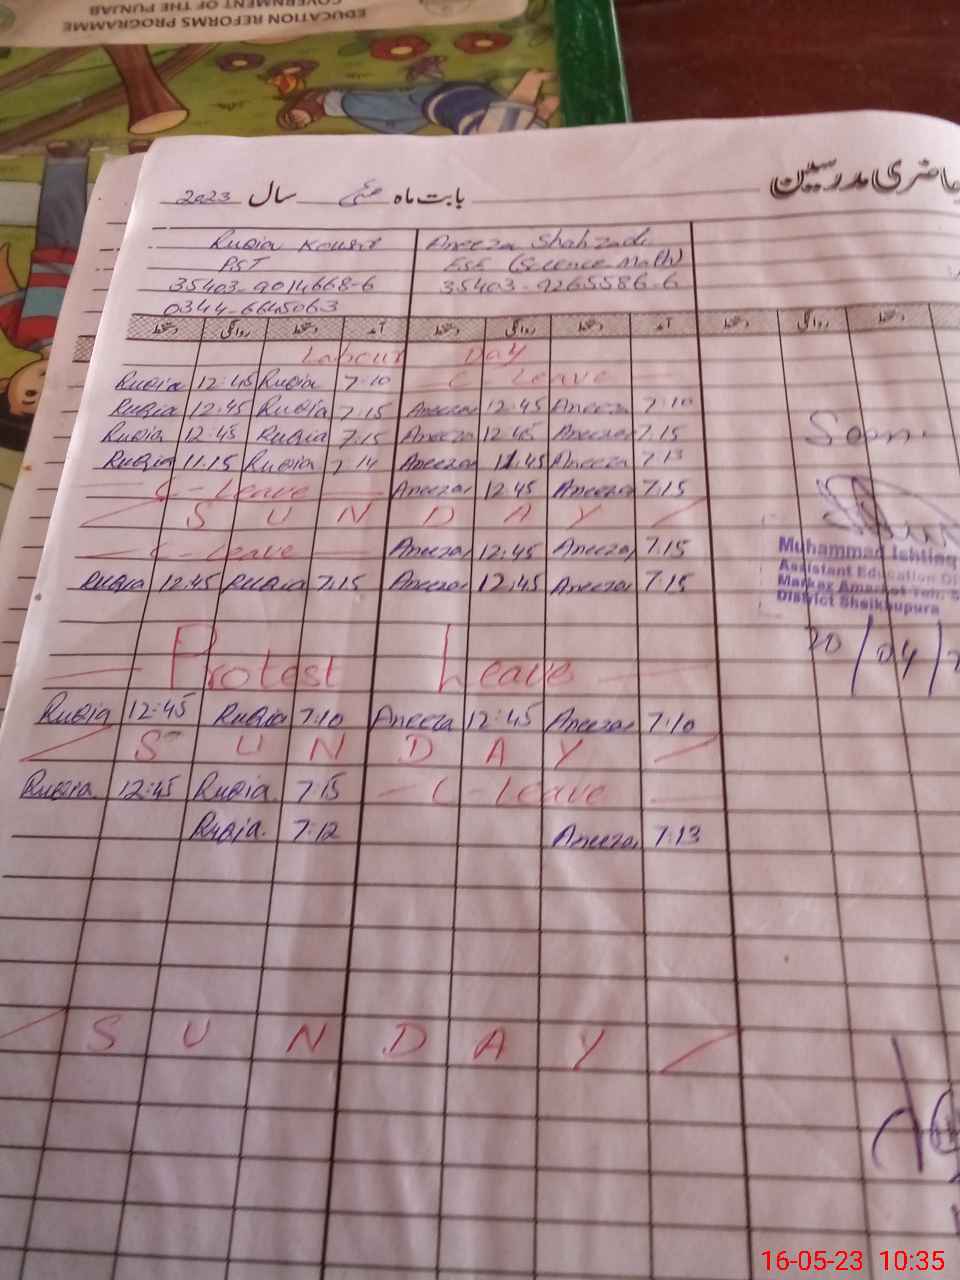 EDUCATION REFORMS PROGRAMME
GOVERNMENT OF THE PUNJAB
حاضری مدرسین
بابت ماہ مئی سال 2023
Rubia Kousar Aneeza Shahzadi
PST ESE (Science Math)
35403-9014668-6 35403-9265586-6
0344-6645063
دستخط روانگی دستخط آمد دستخط روانگی دستخط آمد دستخط روانگی دستخط
Labour Day
Rubia 12:45 Rubia 7:10 C-Leave
Rubia 12:45 Rubia 7:15 Aneeza 12:45 Aneeza 7:10
Rubia 12:45 Rubia 7:15 Aneeza 12:45 Aneeza 7:15
Rubia 11:15 Rubia 7:14 Aneeza 11:45 Aneeza 7:13
C-Leave Aneeza 12:45 Aneeza 7:15
SUNDAY
C-Leave Aneeza 12:45 Aneeza 7:15
Rubia 12:45 Rubia 7:15 Aneeza 12:45 Aneeza 7:15
Muhammad Ishtiaq
Assistant Education
Markaz Amarkot Teh. S
District Sheikhupura
20/04/2
Protest Leave
Rubia 12:45 Rubia 7:10 Aneeza 12:45 Aneeza 7:10
SUNDAY
Rubia 12:45 Rubia 7:15 C-Leave
Rubia 7:12 Aneeza 7:13
SUNDAY
16-05-23 10:35